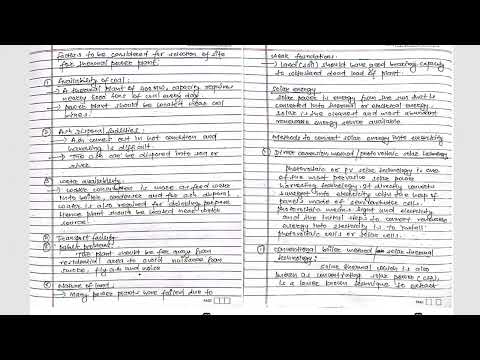 Factors to be considered for selection of site
for thermal power plant.
① Availability of coal :
→ A thermal plant of 400 MW, capacity requires
nearly 6000 tons of coal every day.
→ power plant should be located near coal
mines.
② Ash disposal facilities :
→ Ash comes out in hot condition and
handling is difficult.
→ The ash can be disposed into sea or
river
③ Water availability :
→ Water consumption is more as feed water
into boiler, condenser and for ash disposal
water is also required for drinking purpose
Hence plant should be located near water
source.
Transport facility
Public problems :
The plant should be far away from
residential area to avoid nuisance from
smoke, fly ash and noise.
Nature of land :
→ Many power plants have failed due to
weak foundations.
→ Land (soil) should have good bearing capacity
to withstand dead load of plant.
Solar energy
Solar power is energy from the sun that is
converted into thermal or electrical energy.
Solar is the cleanest and most abundant
renewable energy source available.
Methods to convert solar energy into electricity
① Direct conversion method / photovoltaic solar technology
Photovoltaic or PV solar technology is one
of the most pervasive solar power
harvesting technology. It directly converts
sunlight into electricity with the help of
panels made of semiconductor cells.
Photovoltaic means light and electricity
and the initial steps to convert
energy into electricity is to
photovoltaic cells or solar cells.
Conventional boiler method / solar thermal
technology :
Solar thermal which is also
known as concentrating solar power (CSP),
is a lesser known technique to extract
PAGE
PAGE